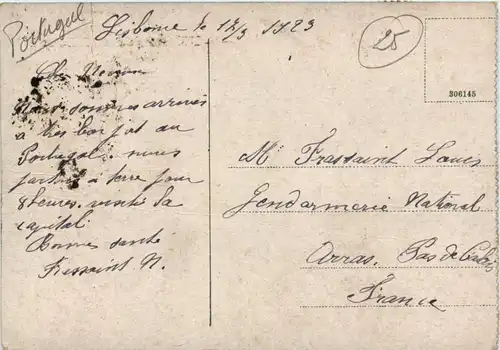 Portugal
Lisbonne le 12/3 1923
25
306145
Nous sommes arrivés
a très bon port au
Portugal. nous
a terre pour
8 heures. visité la
capital
Bonne santé
Fressaint N.
Mr Fressaint Louis
Gendarmerie National
Arras. Pas de Calais
France